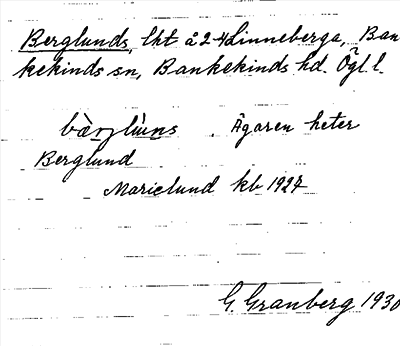 Berglunds, lht å 2 4 Linneberga, Ban
kekinds sn, Bankekinds hd. Ögl. l.
bà̀rglùns. Ägaren heter
Berglund
Marielund kb 1927
G. Granberg 1930